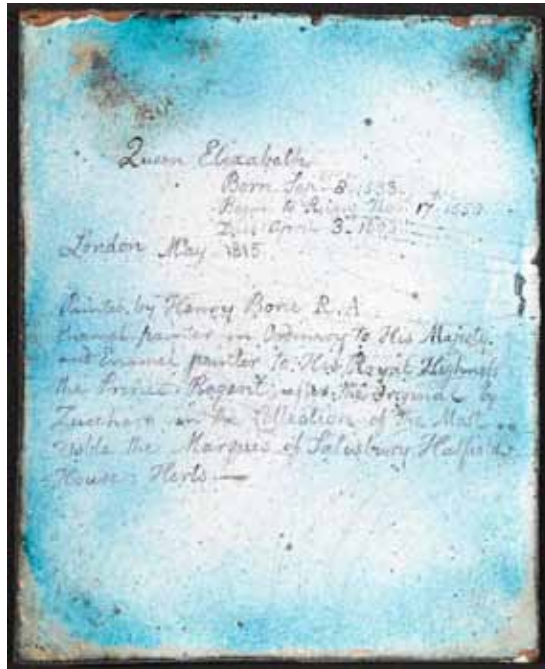 Queen Elizabeth
Born Sepr 8th 1533.
Began to Reign Novr 17th 1558
Died April 3d
London May 1815.
Painted by Henry Bone R.A
Enamel painter in Ordinary to His Majesty
and Enamel painter to His Royal Highness
the Prince Regent, after the Original by
Zucchero in the Collection of the Most
noble the Marques of Salesbury Hatfield
House. Herts.—